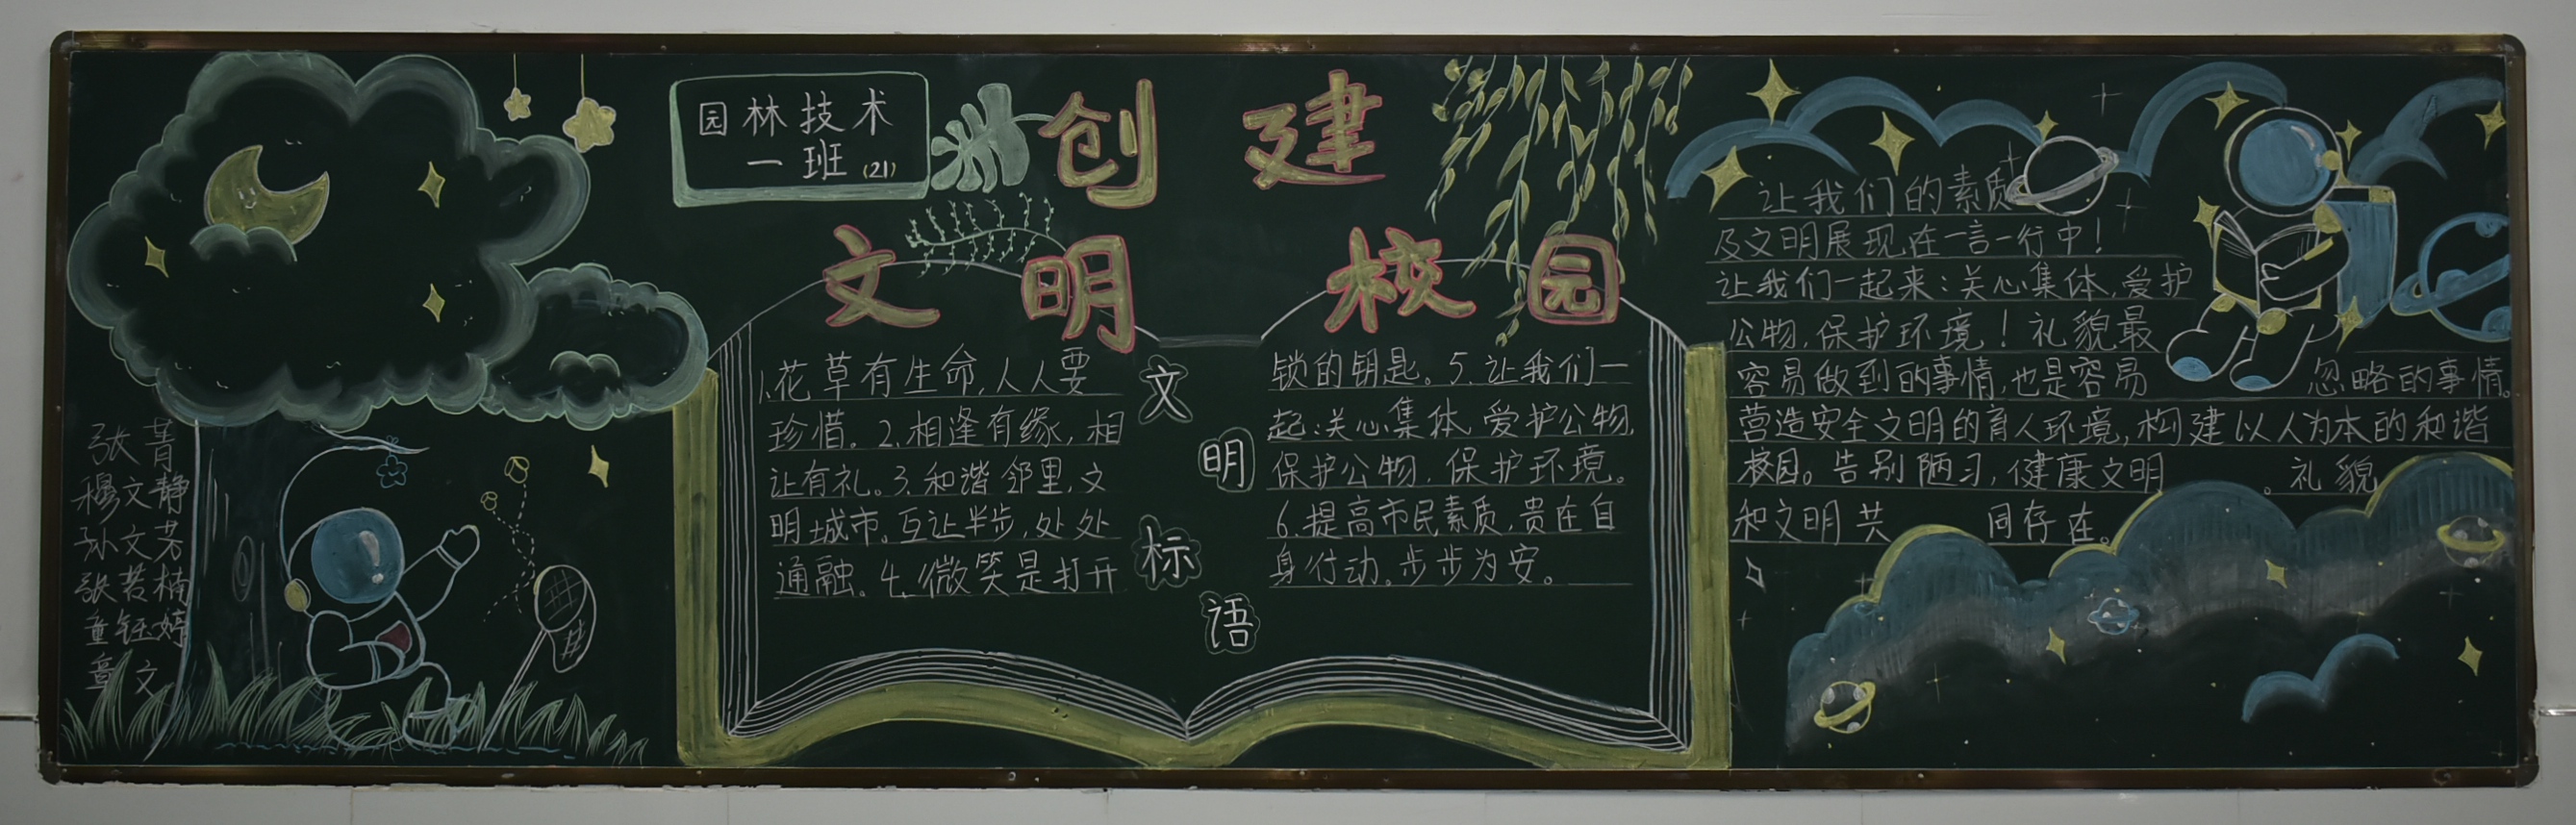 园林技术
一班(21)
创建
文明校园
1.花草有生命,人人要
珍惜。2.相逢有缘,相
让有礼。3.和谐邻里,文
明城市。互让半步,处处
通融。4.微笑是打开
文
明
标
语
锁的钥匙。5.让我们一
起:关心集体,爱护公物,
保护公物,保护环境。
6.提高市民素质,贵在自
身行动。步步为安。
让我们的素质
及文明展现在一言一行中!
让我们一起来:关心集体,爱护
公物,保护环境!礼貌最
容易做到的事情,也是容易忽略的事情。
营造安全文明的育人环境,构建以人为本的和谐
校园。告别陋习,健康文明。礼貌
和文明共同存在。
张菁
穆文静
孙文芳
张若楠
童钰婷
章文